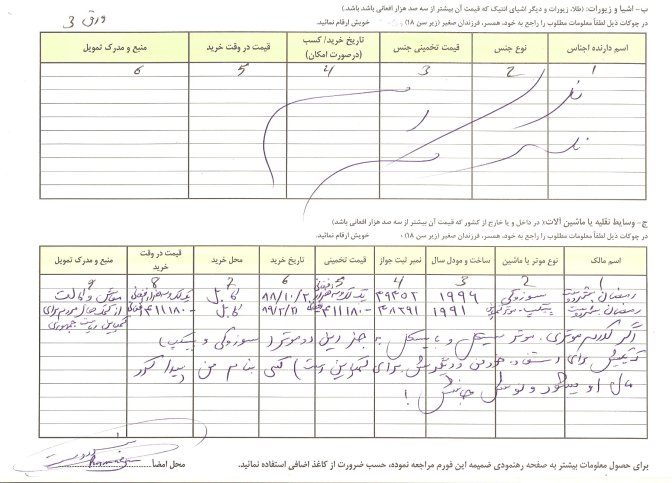 ورق 3
ب- اشیا و زیورات: (طلا، زیورات و دیگر اشیای انتیک که قیمت آن بیشتر از سه صد هزار افغانی باشد باشد)
در جوکات ذیل لطفاً معلومات مطلوب را راجع به خود، همسر، فرزندان صغیر (زیر سن ۱۸) خویش ارقام نمائید.
اسم دارنده اجناس نوع جنس قیمت تخمینی جنس تاریخ خرید/ کسب (درصورت امکان) قیمت در وقت خرید منبع و مدرک تمویل
1 2 3 4 5 6
ندارد
ج- وسایط نقلیه یا ماشین آلات: ( در داخل و یا خارج از کشور که قیمت آن بیشتر از سه صد هزار افغانی باشد)
در جوکات ذیل لطفاً معلومات مطلوب را راجع به خود، همسر، فرزندان صغیر (زیر سن ۱۸) خویش ارقام نمائید.
اسم مالک نوع موتر یا ماشین ساخت و مودل سال نمبر ثبت جواز قیمت تخمینی تاریخ خرید محل خرید قیمت در وقت خرید منبع و مدرک تمویل
1 2 3 4 5 6 7 8 9
رمضان بشردوست سوزوکی ۱۹۹۶ ۴۹۴۵۲ ۸۸/۱۰/۲ کابل معاش وکالت
رمضان بشردوست ۱۹۹۱ ۴۸۲۹۱ ۴۱۱۱۸۰ ۸۹/۲/۲۱ کابل ۴۱۱۱۸۰ از
ریاست جمهوری
اگر کدام موتری، موتر سیکل و یا بایسکل به جز این دو موتر (سوزوکی و
برای استفاده خودم برای کمپاین است) کسی بنام من پیدا کرد
مال او میشود و نوش جانش !
برای حصول معلومات بیشتر به صفحه رهنمودی ضمیمه این فورم مراجعه نموده، حسب ضرورت از کاغذ اضافی استفاده نمائید. محل امضا